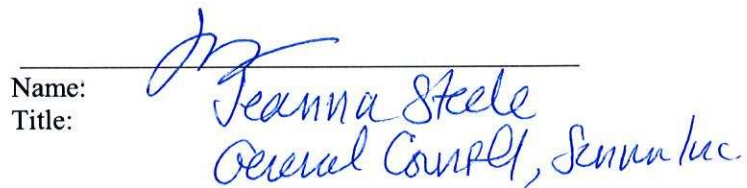 Name: Jeanna Steele
Title: General Counsel, Sunrun Inc.